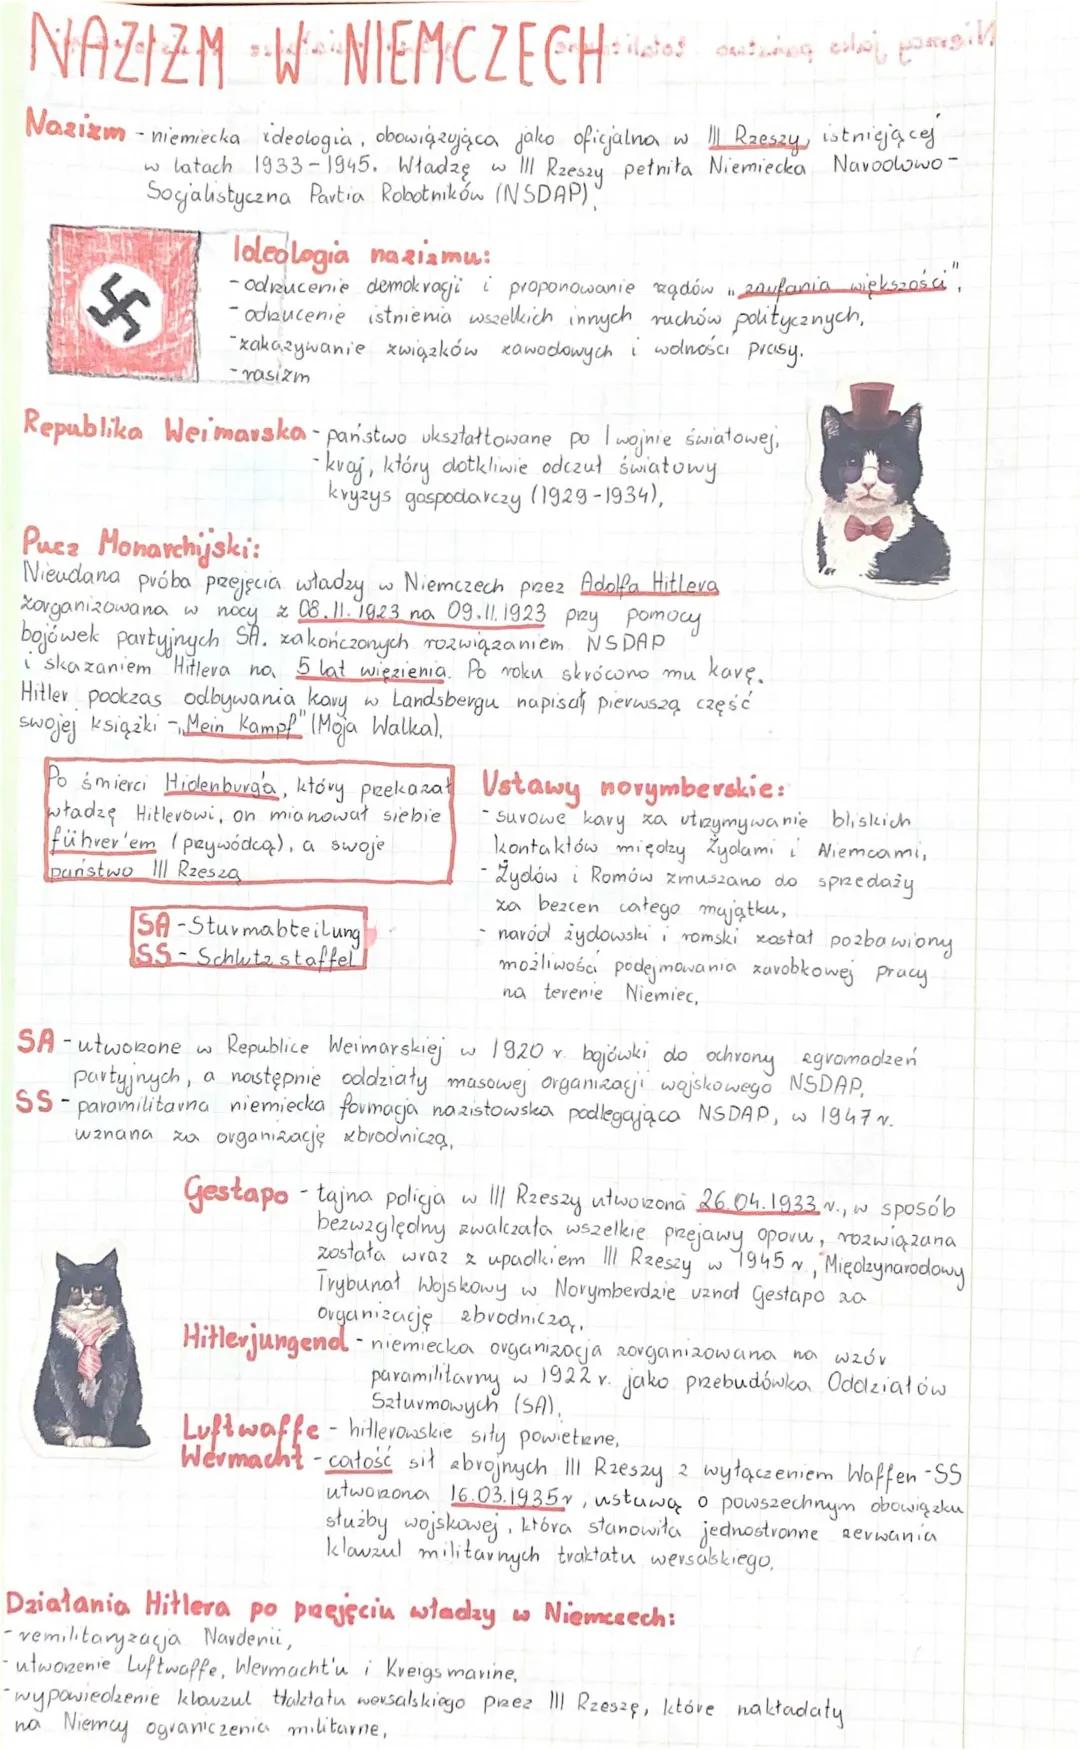 NAZIZM W NIEMCZECH
Nazizm - niemiecka ideologia, obowiązująca jako oficjalna w III Rzeszy, istniejącej
w latach 1933-1945. Władzę w III Rzeszy pełniła Niemiecka Narodowo-
Socjalistyczna Partia Robotników (NSDAP).
Ideologia nazizmu:
- odrzucenie demokracji i proponowanie rządów „zaufania większości",
- odrzucenie istnienia wszelkich innych ruchów politycznych,
- zakazywanie związków zawodowych i wolności prasy.
- rasizm
Republika Weimarska - państwo ukształtowane po I wojnie światowej,
- kraj, który dotkliwie odczuł światowy
kryzys gospodarczy (1929-1934),
Pucz Monarchijski:
Nieudana próba przejęcia władzy w Niemczech przez Adolfa Hitlera
zorganizowana w nocy z 08.11.1923 na 09.11.1923 przy pomocy
bojówek partyjnych SA. zakończonych rozwiązaniem NSDAP
i skazaniem Hitlera na 5 lat więzienia. Po roku skrócono mu karę.
Hitler podczas odbywania kary w Landsbergu napisał pierwszą część
swojej książki - „Mein Kampf" (Moja Walka).
Po śmierci Hidenburg'a, który przekazał
władzę Hitlerowi, on mianował siebie
führer'em (przywódcą), a swoje
państwo III Rzeszą
SA - Sturmabteilung
SS - Schlutzstaffel
Ustawy norymberskie:
- surowe kary za utrzymywanie bliskich
kontaktów między Żydami i Niemcami,
- Żydów i Romów zmuszano do sprzedaży
za bezcen całego majątku,
- naród żydowski i romski został pozbawiony
możliwości podejmowania zarobkowej pracy
na terenie Niemiec,
SA - utworzone w Republice Weimarskiej w 1920 r. bojówki do ochrony zgromadzeń
partyjnych, a następnie oddziały masowej organizacji wojskowego NSDAP,
SS - paramilitarna niemiecka formacja nazistowska podlegająca NSDAP, w 1947 r.
uznana za organizację zbrodniczą,
Gestapo - tajna policja w III Rzeszy utworzona 26.04.1933 r., w sposób
bezwzględny zwalczała wszelkie przejawy oporu, rozwiązana
została wraz z upadkiem III Rzeszy w 1945 r., Międzynarodowy
Trybunał Wojskowy w Norymberdzie uznał Gestapo za
organizację zbrodniczą,
Hitlerjungend - niemiecka organizacja zorganizowana na wzór
paramilitarny w 1922 r. jako przebudówka Oddziałów
Szturmowych (SA),
Luftwaffe - hitlerowskie siły powietrzne,
Wermacht - całość sił zbrojnych III Rzeszy z wyłączeniem Waffen-SS
utworzona 16.03.1935r, ustawą o powszechnym obowiązku
służby wojskowej, która stanowiła jednostronne zerwania
klauzul militarnych traktatu wersalskiego,
Działania Hitlera po przejęciu władzy w Niemczech:
- remilitaryzacja Nardenii,
- utworzenie Luftwaffe, Wermacht'u i Kreigsmarine,
- wypowiedzenie klauzul traktatu wersalskiego przez III Rzeszę, które nakładały
na Niemcy ograniczenia militarne,